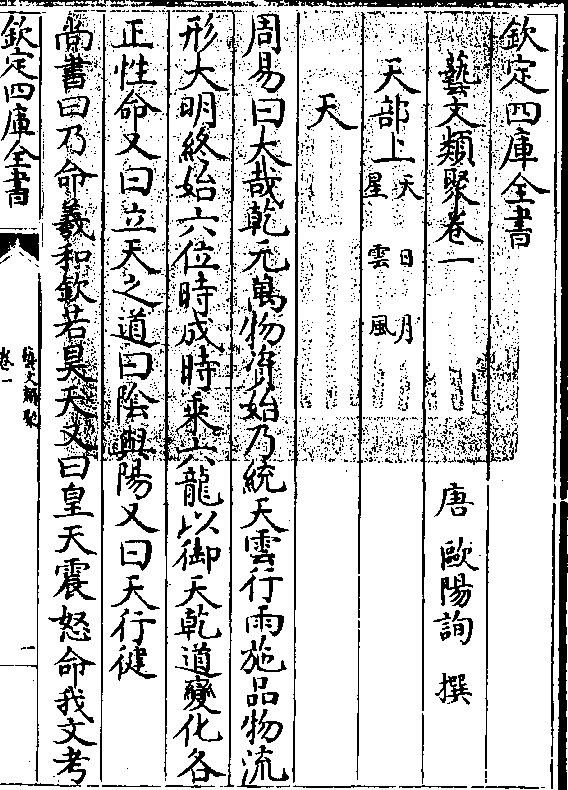 欽定四庫全書
藝文類聚卷一
唐 歐陽詢 撰
天部上 天 日 月 星 雲 風
天
周易曰大哉乾元萬物資始乃統天雲行雨施品物流
形大明終始六位時成時乘六龍以御天乾道變化各
正性命又曰立天之道曰陰與陽又曰天行健
尚書曰乃命羲和欽若昊天又曰皇天震怒命我文考
欽定四庫全書
藝文類聚
卷一
一